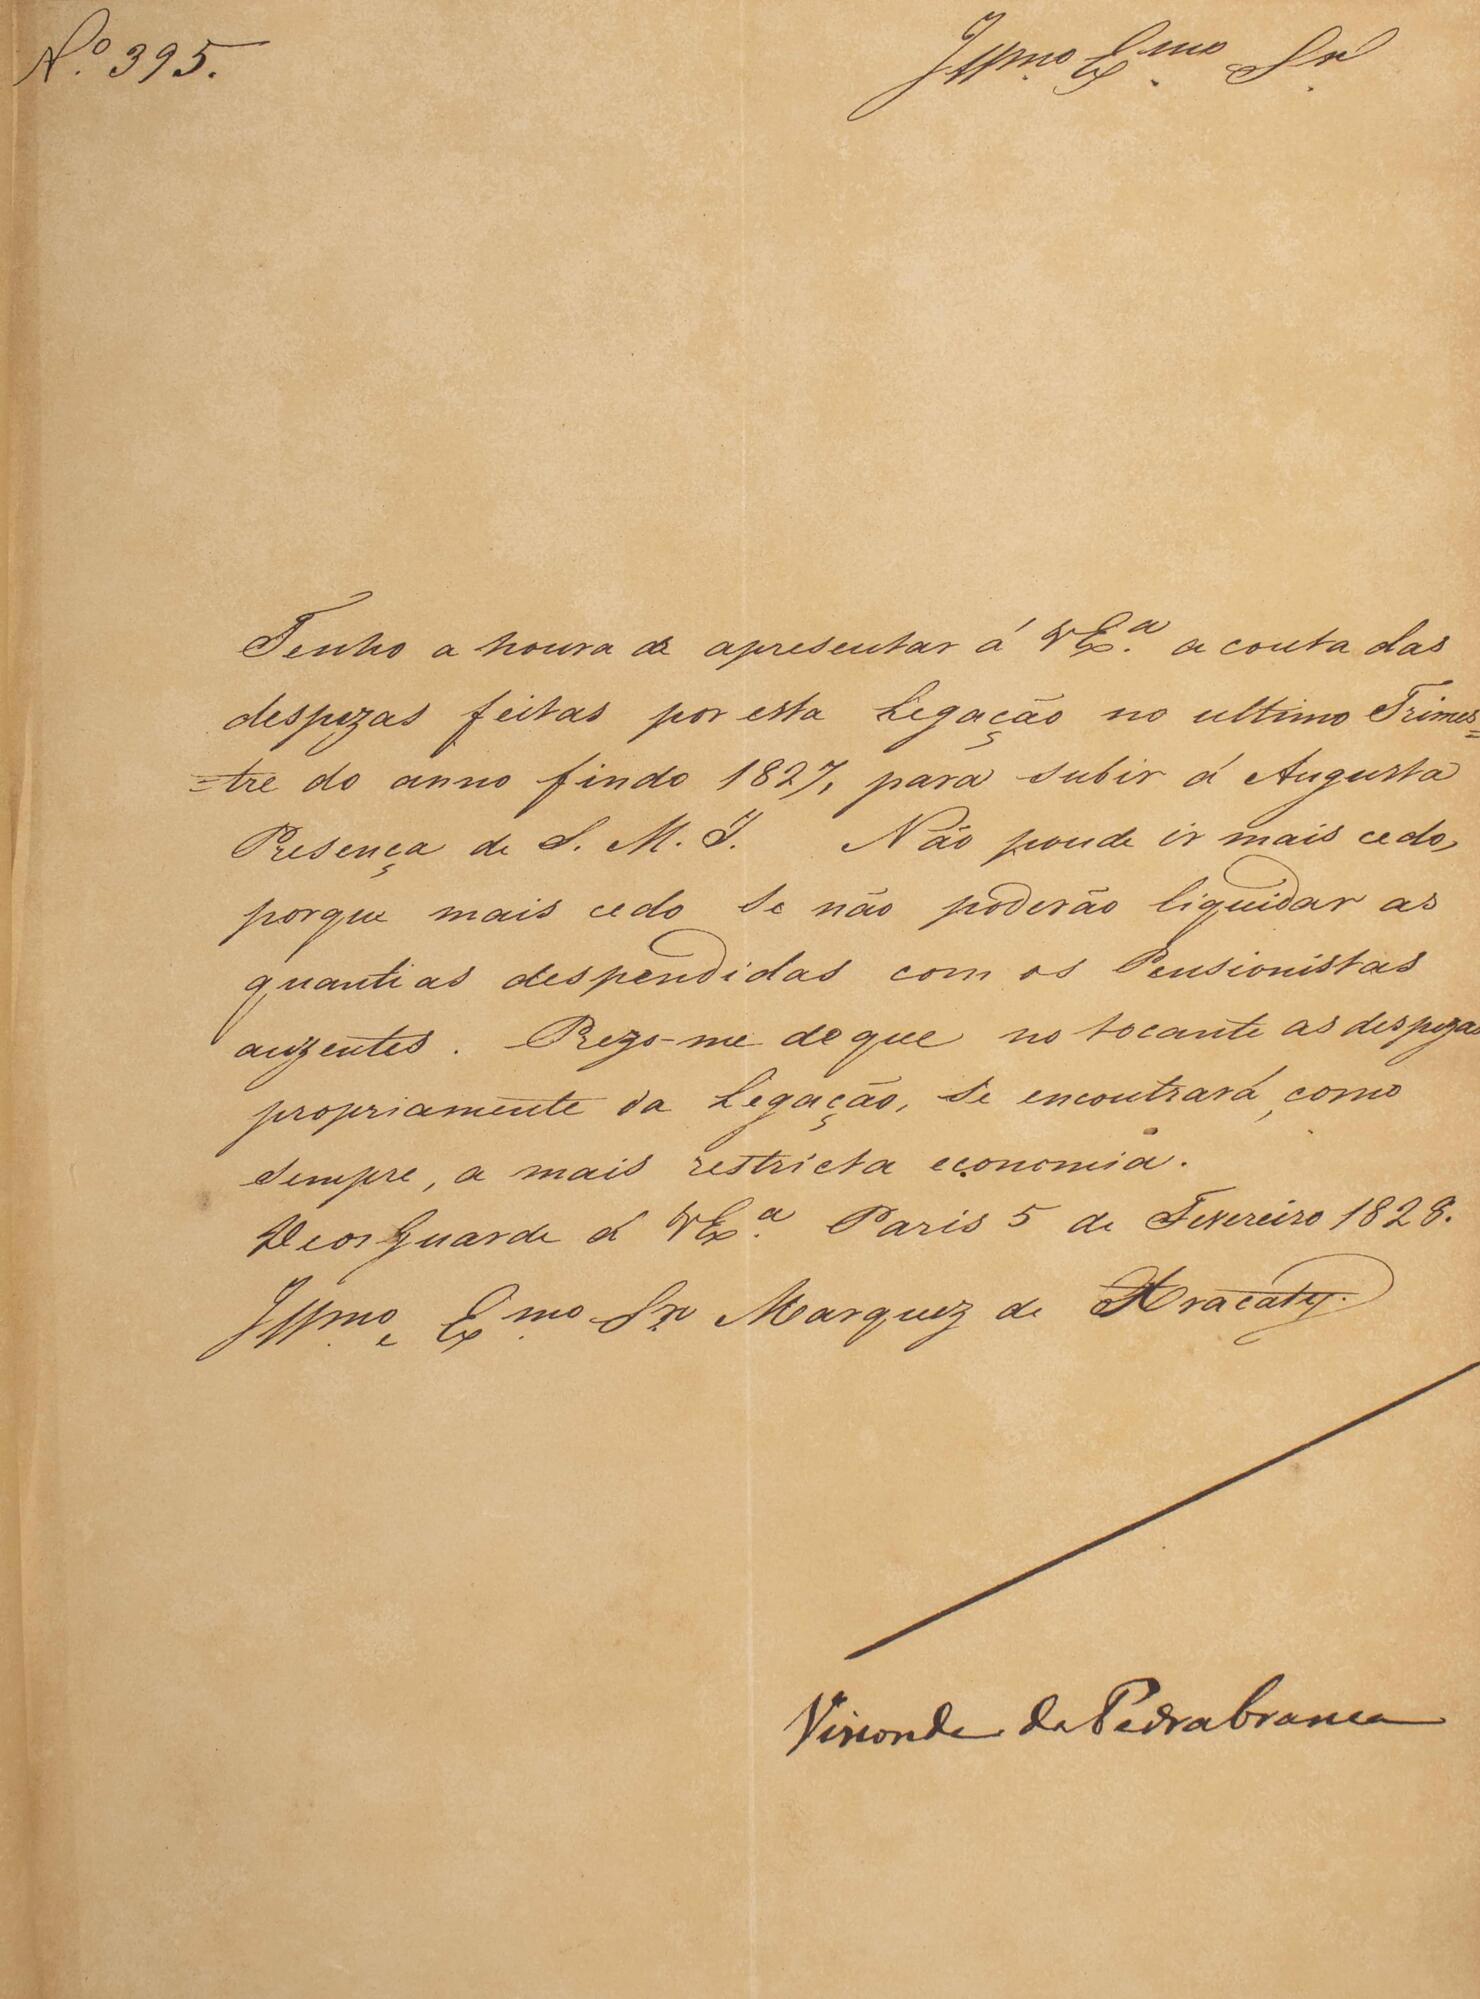 N.º 395.
Illmo. Exmo. Snr.
Tenho a honra de apresentar á V Ex.ª a conta das
despezas feitas por esta Legação no ultimo Trimes=
=tre do anno findo 1827, para subir á Augusta
Presença de S. M. I. Não poude ir mais cedo,
porque mais cedo se não poderão liquidar as
quantias despendidas com os Pensionistas
auzentes. Prezo-me de que no tocante as despezas
propriamente da Legação, se encontrará, como
sempre, a mais restricta economia.
Deos Guarde á V Ex.ª Paris 5 de Fevereiro 1828.
Illmo. e Exmo. Snr. Marquez de Aracaty.
Visconde da Pedrabranca